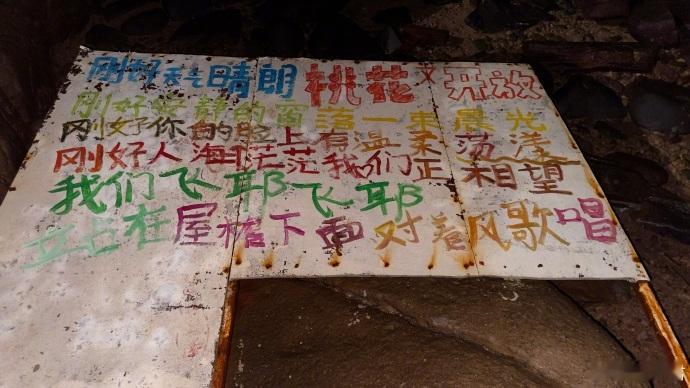 刚好天气晴朗桃花又开放
刚好安静的窗落一束晨光
刚好你的脸上有温柔荡漾
刚好人海茫茫我们正相望
我们飞耶飞耶
站在屋檐下面对着风歌唱